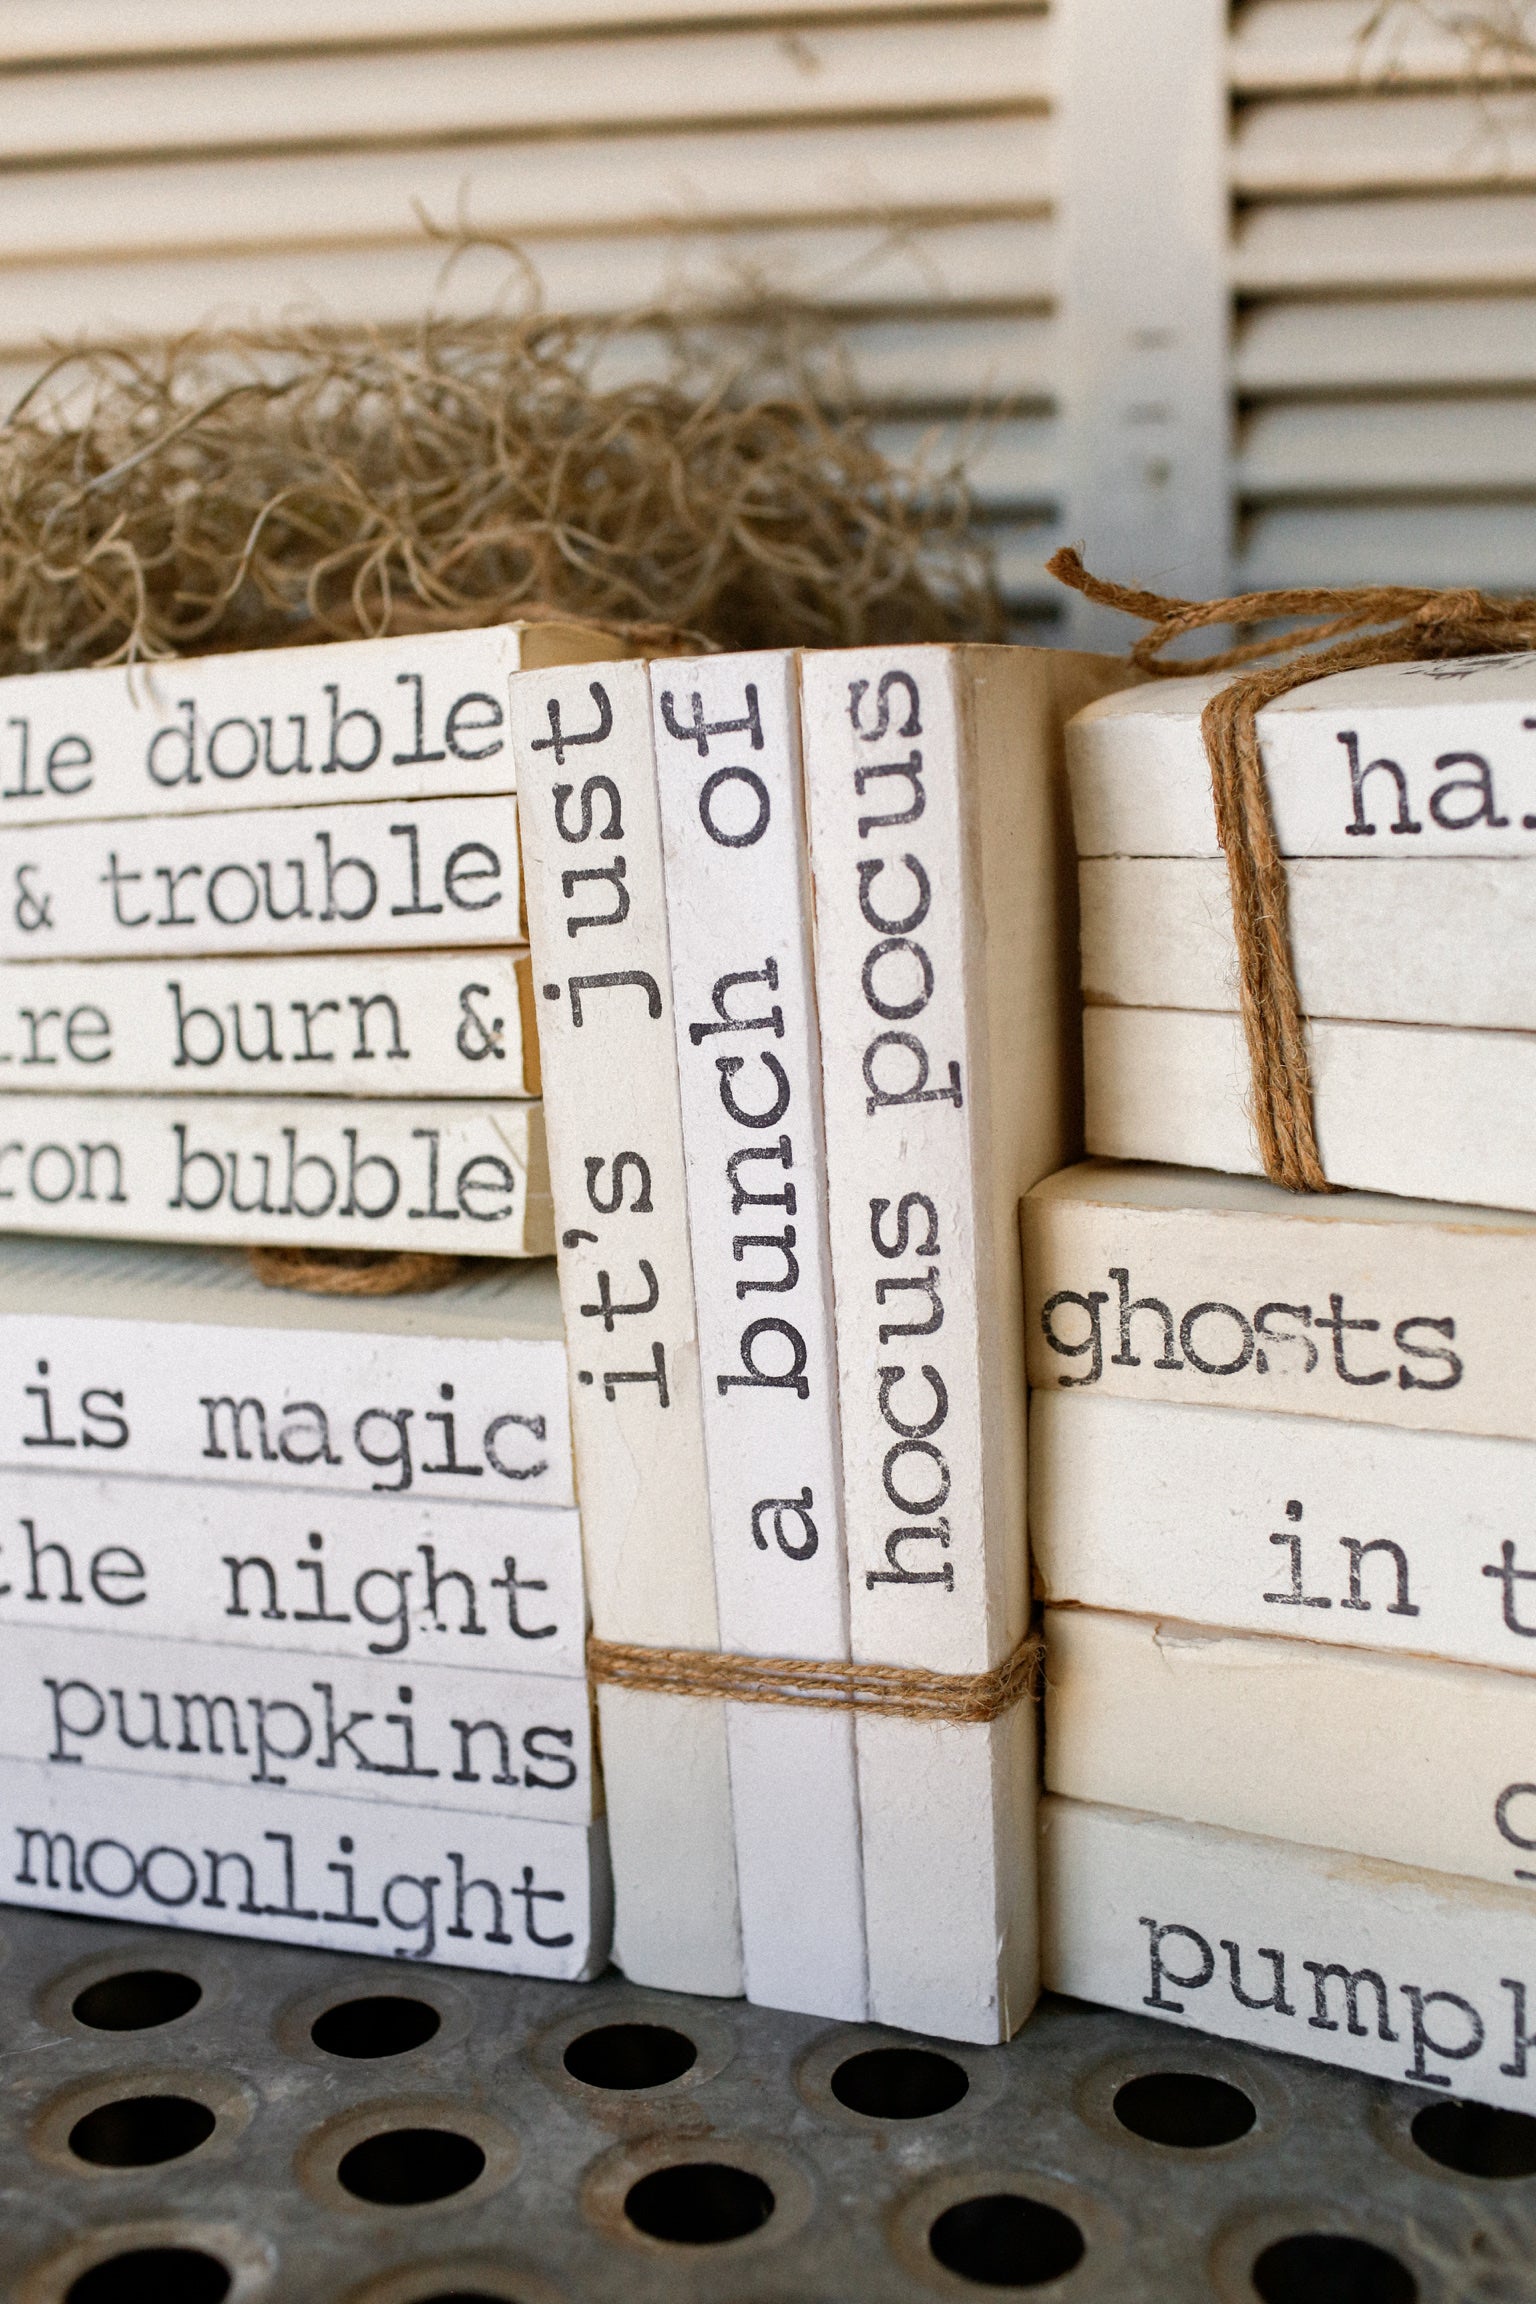 le double
& trouble
re burn &
ron bubble
is magic
the night
pumpkins
moonlight
it's just
a bunch of
hocus pocus
ha
ghosts
in t
pumpk